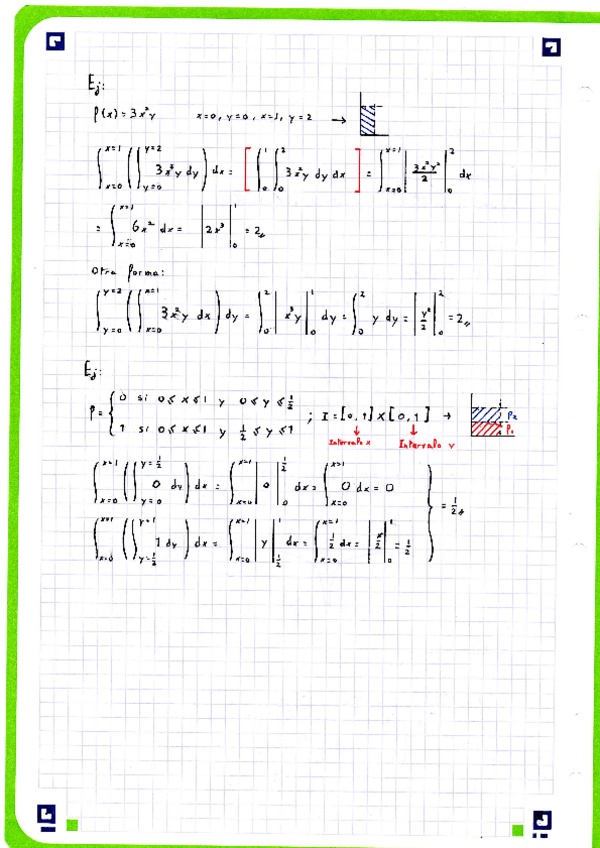 Ej:
f(x) = 3x²y x=0, y=0, x=1, y=2 →
∫_{x=0}^{x=1} (∫_{y=0}^{y=2} 3x²y dy) dx = [∫_0^1 ∫_0^2 3x²y dy dx] = ∫_{x=0}^{x=1} |3x²y²/2|_0^2 dx
= ∫_{x=0}^{x=1} 6x² dx = |2x³|_0^1 = 2
Otra forma:
∫_{y=0}^{y=2} (∫_{x=0}^{x=1} 3x²y dx) dy = ∫_0^2 |x³y|_0^1 dy = ∫_0^2 y dy = |y²/2|_0^2 = 2
Ej:
f = { 0 si 0≤x≤1 y 0≤y≤1/2
1 si 0≤x≤1 y 1/2≤y≤1 ; I = [0,1] X [0,1] →
Intervalo x Intervalo y
f₂
f₁
∫_{x=0}^{x=1} (∫_{y=0}^{y=1/2} 0 dy) dx = ∫_{x=0}^{x=1} |0|_0^{1/2} dx = ∫_{x=0}^{x=1} 0 dx = 0
∫_{x=0}^{x=1} (∫_{y=1/2}^{y=1} 1 dy) dx = ∫_{x=0}^{x=1} |y|_{1/2}^1 dx = ∫_{x=0}^{x=1} 1/2 dx = |x/2|_0^1 = 1/2 } = 1/2